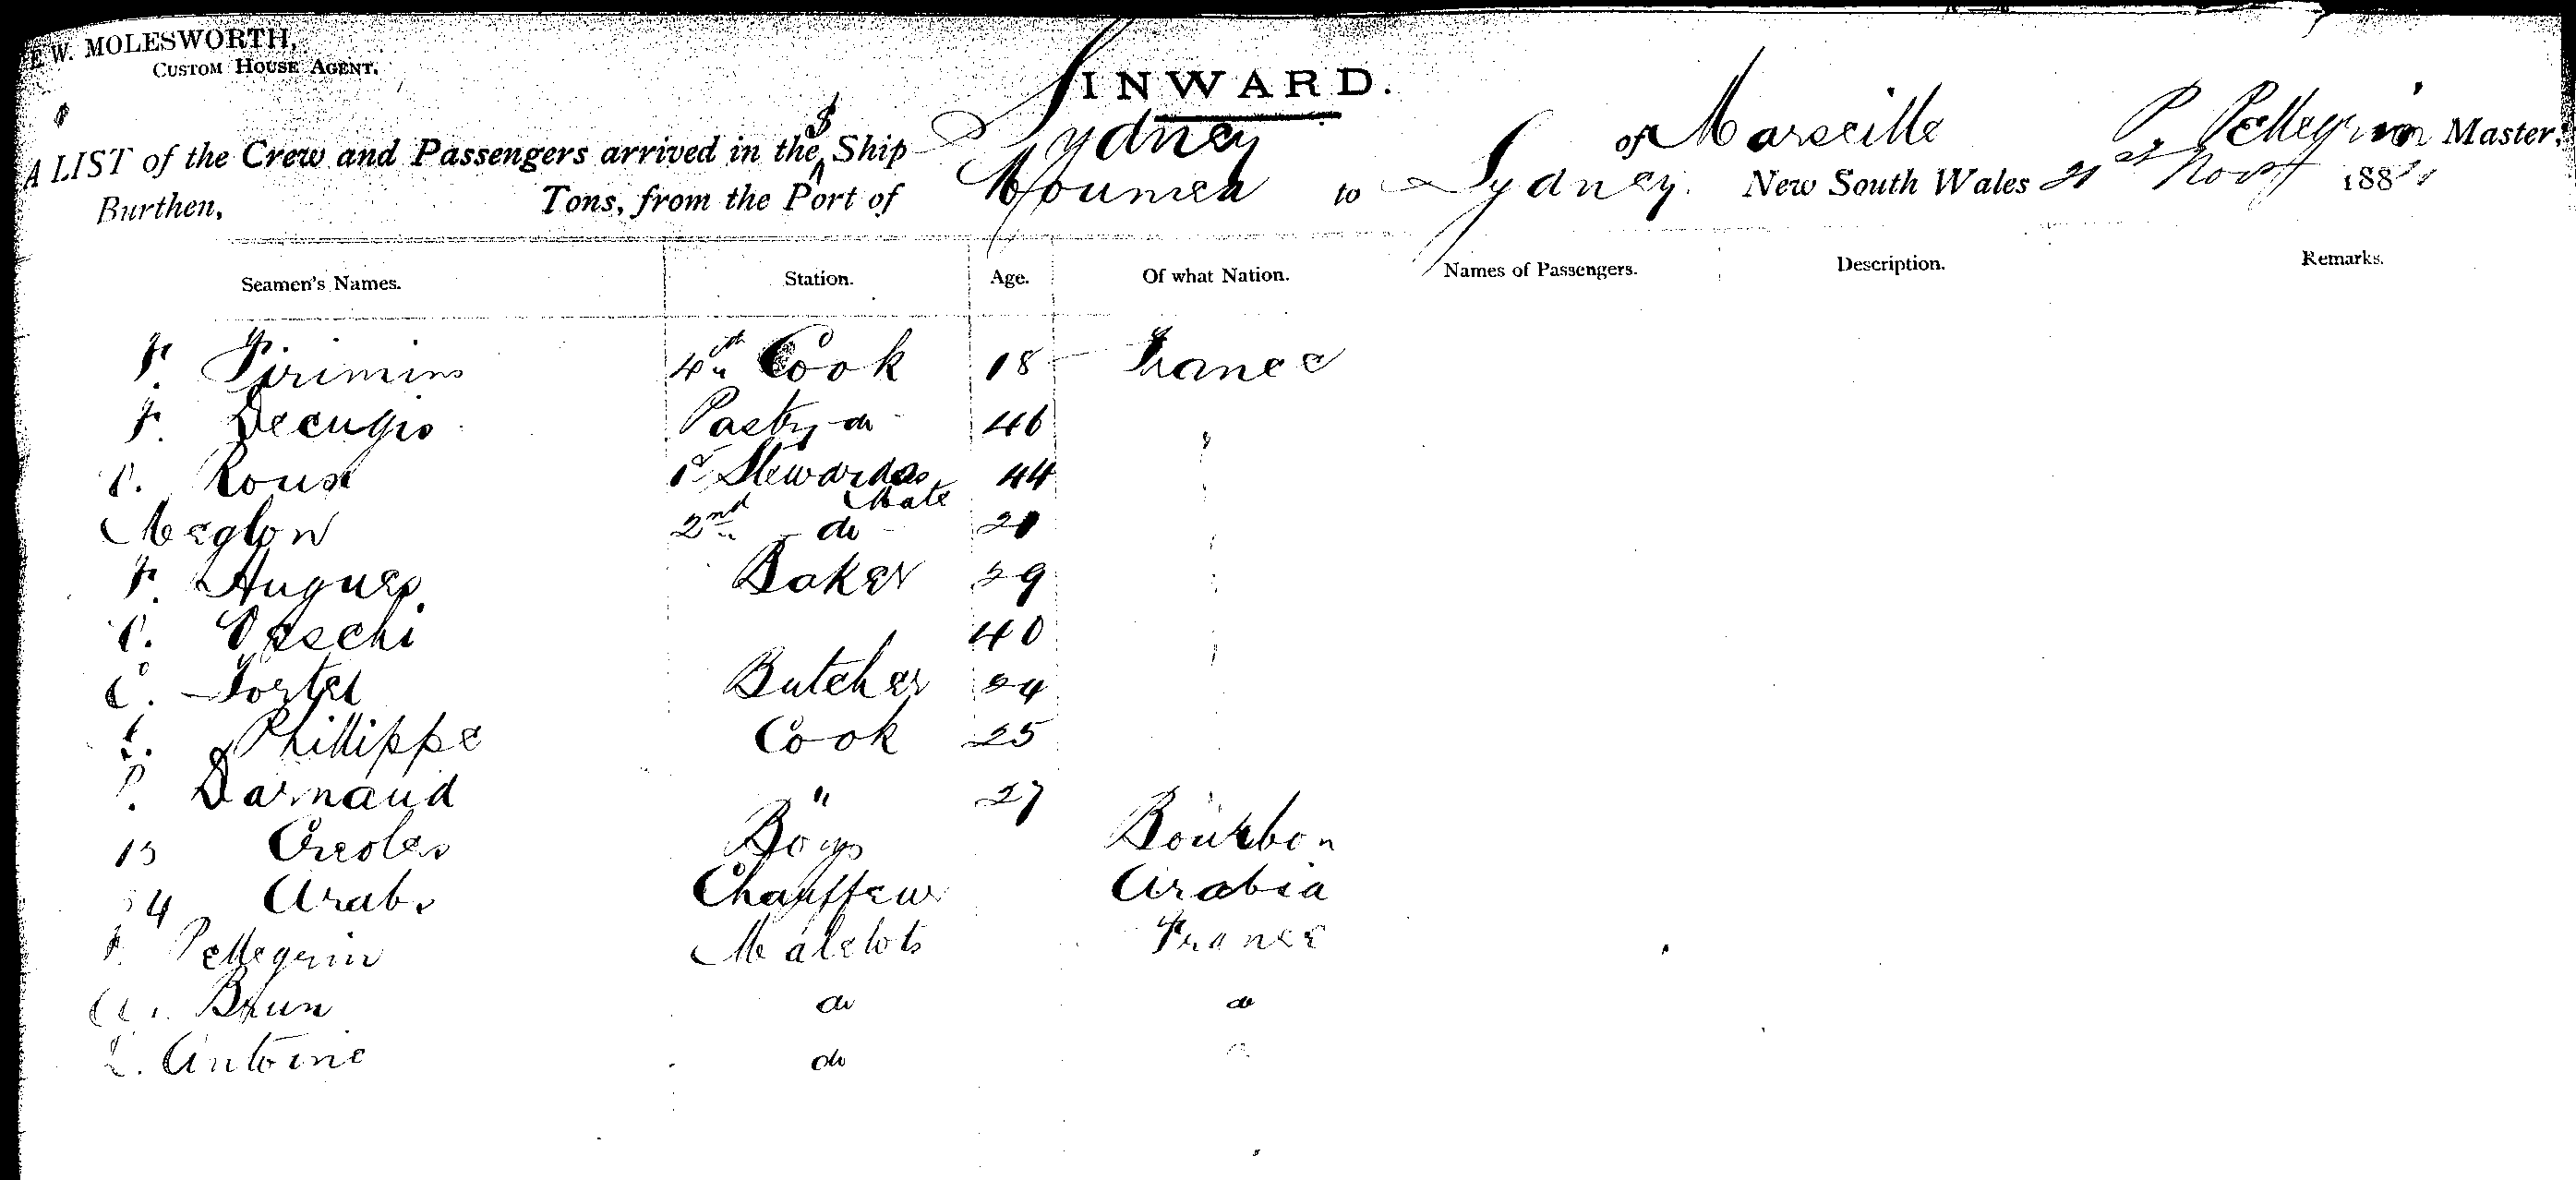 E W. MOLESWORTH,
CUSTOM HOUSE AGENT.
INWARD.
A LIST of the Crew and Passengers arrived in the S Ship Sydney of Marseille P. Pellegrin Master,
Burthen, Tons, from the Port of Noumea to Sydney. New South Wales 21st Novr 188
Seamen's Names. Station. Age. Of what Nation. Names of Passengers. Description. Remarks.
F. Firimins 4th Cook 18 France
F. Decugis Pastry do 46 "
P. Roux 1st Stewardess 44 "
Meglow 2nd Mate do 21 "
F. Hugues Baker 29 "
P. Veschi 40 "
C. Tortel Butcher 24
L. Phillippe Cook 25
P. Darnaud " 27 "
13 Creoles Boys Bourbon
34 Arabs Chauffeur Arabia
F. Pellegrin Matelots France
A. Brun do do
L. Antoine do